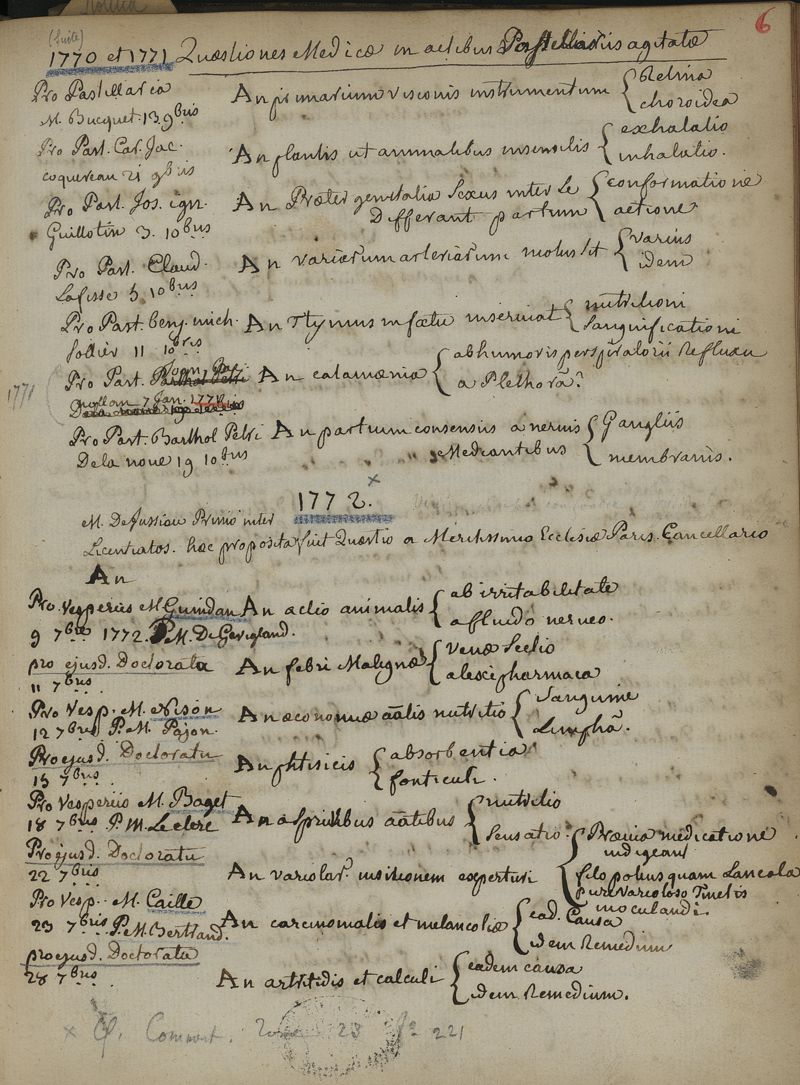 6
(Suite)
1770 et 1771 Quæstiones Medicæ in actibus Pastellariis agitatæ
Pro Pastillaria
M. Bucquet. 13. 9bris
An primarium visionis instrumentum { Retina
choroidea
Pro Part. Car. Jac.
coquereau 21 9bris
An plantis ut animalibus insensilis { exhalatio
inhalatio.
Pro Part. Jos. ign.
Guillotin 3. 10bris
An Præter genitalia Sexus inter se
Differant partium { conformatione
actione
Pro Part. Claud.
Lafisse 5 10bris
An variarum arteriarum motus sit { varius
idem
Pro Part. benj. mich.
Sollier 11 10bris
An Thymus in fœtu inserviat { nutritioni
Sanguificationi
1771
Pro Part. Joan. Ja.
nollan 7 Jan. 1771
An catamænia { ab humoris perspiratorii Refluxu
a Plethorâ?
Pro Part. Barthol Petri
Dela noue 19 10bris
An partium consensus a nervis
Mediantibus { Gangliis
membranis.
1772. x
M. De Jussieu Primo inter
Licentiatos. hæc proposita fuit Quæstio a Meritissimo Ecclesiæ Paris. Cancellario
An
Pro. vesperiis M. Guindan
9 7bris 1772. P. M. De Gevigland.
An actio animalis { ab irritabilitate
a fluido nerveo.
pro ejusd. Doctoratu
11 7bris
An febri Malignæ { venæ Sectio
alexipharmaca
Pro Vesp. M. Nisôn
12 7bris P. M. Pajon.
An œconomiæ aâlis nutritio { Sanguine
Lymphâ.
Pro ejusd. Doctoratu
15 7bris
An phtisicis { absorbentia
fonticuli.
Pro Vesperiis M. Baget
18 7bris P. M. Leclerc
An aspiritibus aâtibus { nutritio
Sensatio.
Pro ejusd. Doctoratu
22 7bris
An variolar. insitionem experturi { Præviâ medicatione
indigeant
filo potius quam Lanceola
pure varioloso Tinctis
inoculandi.
Pro Vesp. M. Caille
23 7bris P. M. Bertrand.
An carcinomatis et melancoliæ { ead. Causa
idem Remedium
pro ejusd. Doctoratu
28 7bris
An artritidis et calculi { eadem causa
idem Remedium.
x Cf. Comment. Tome 23 fo 221